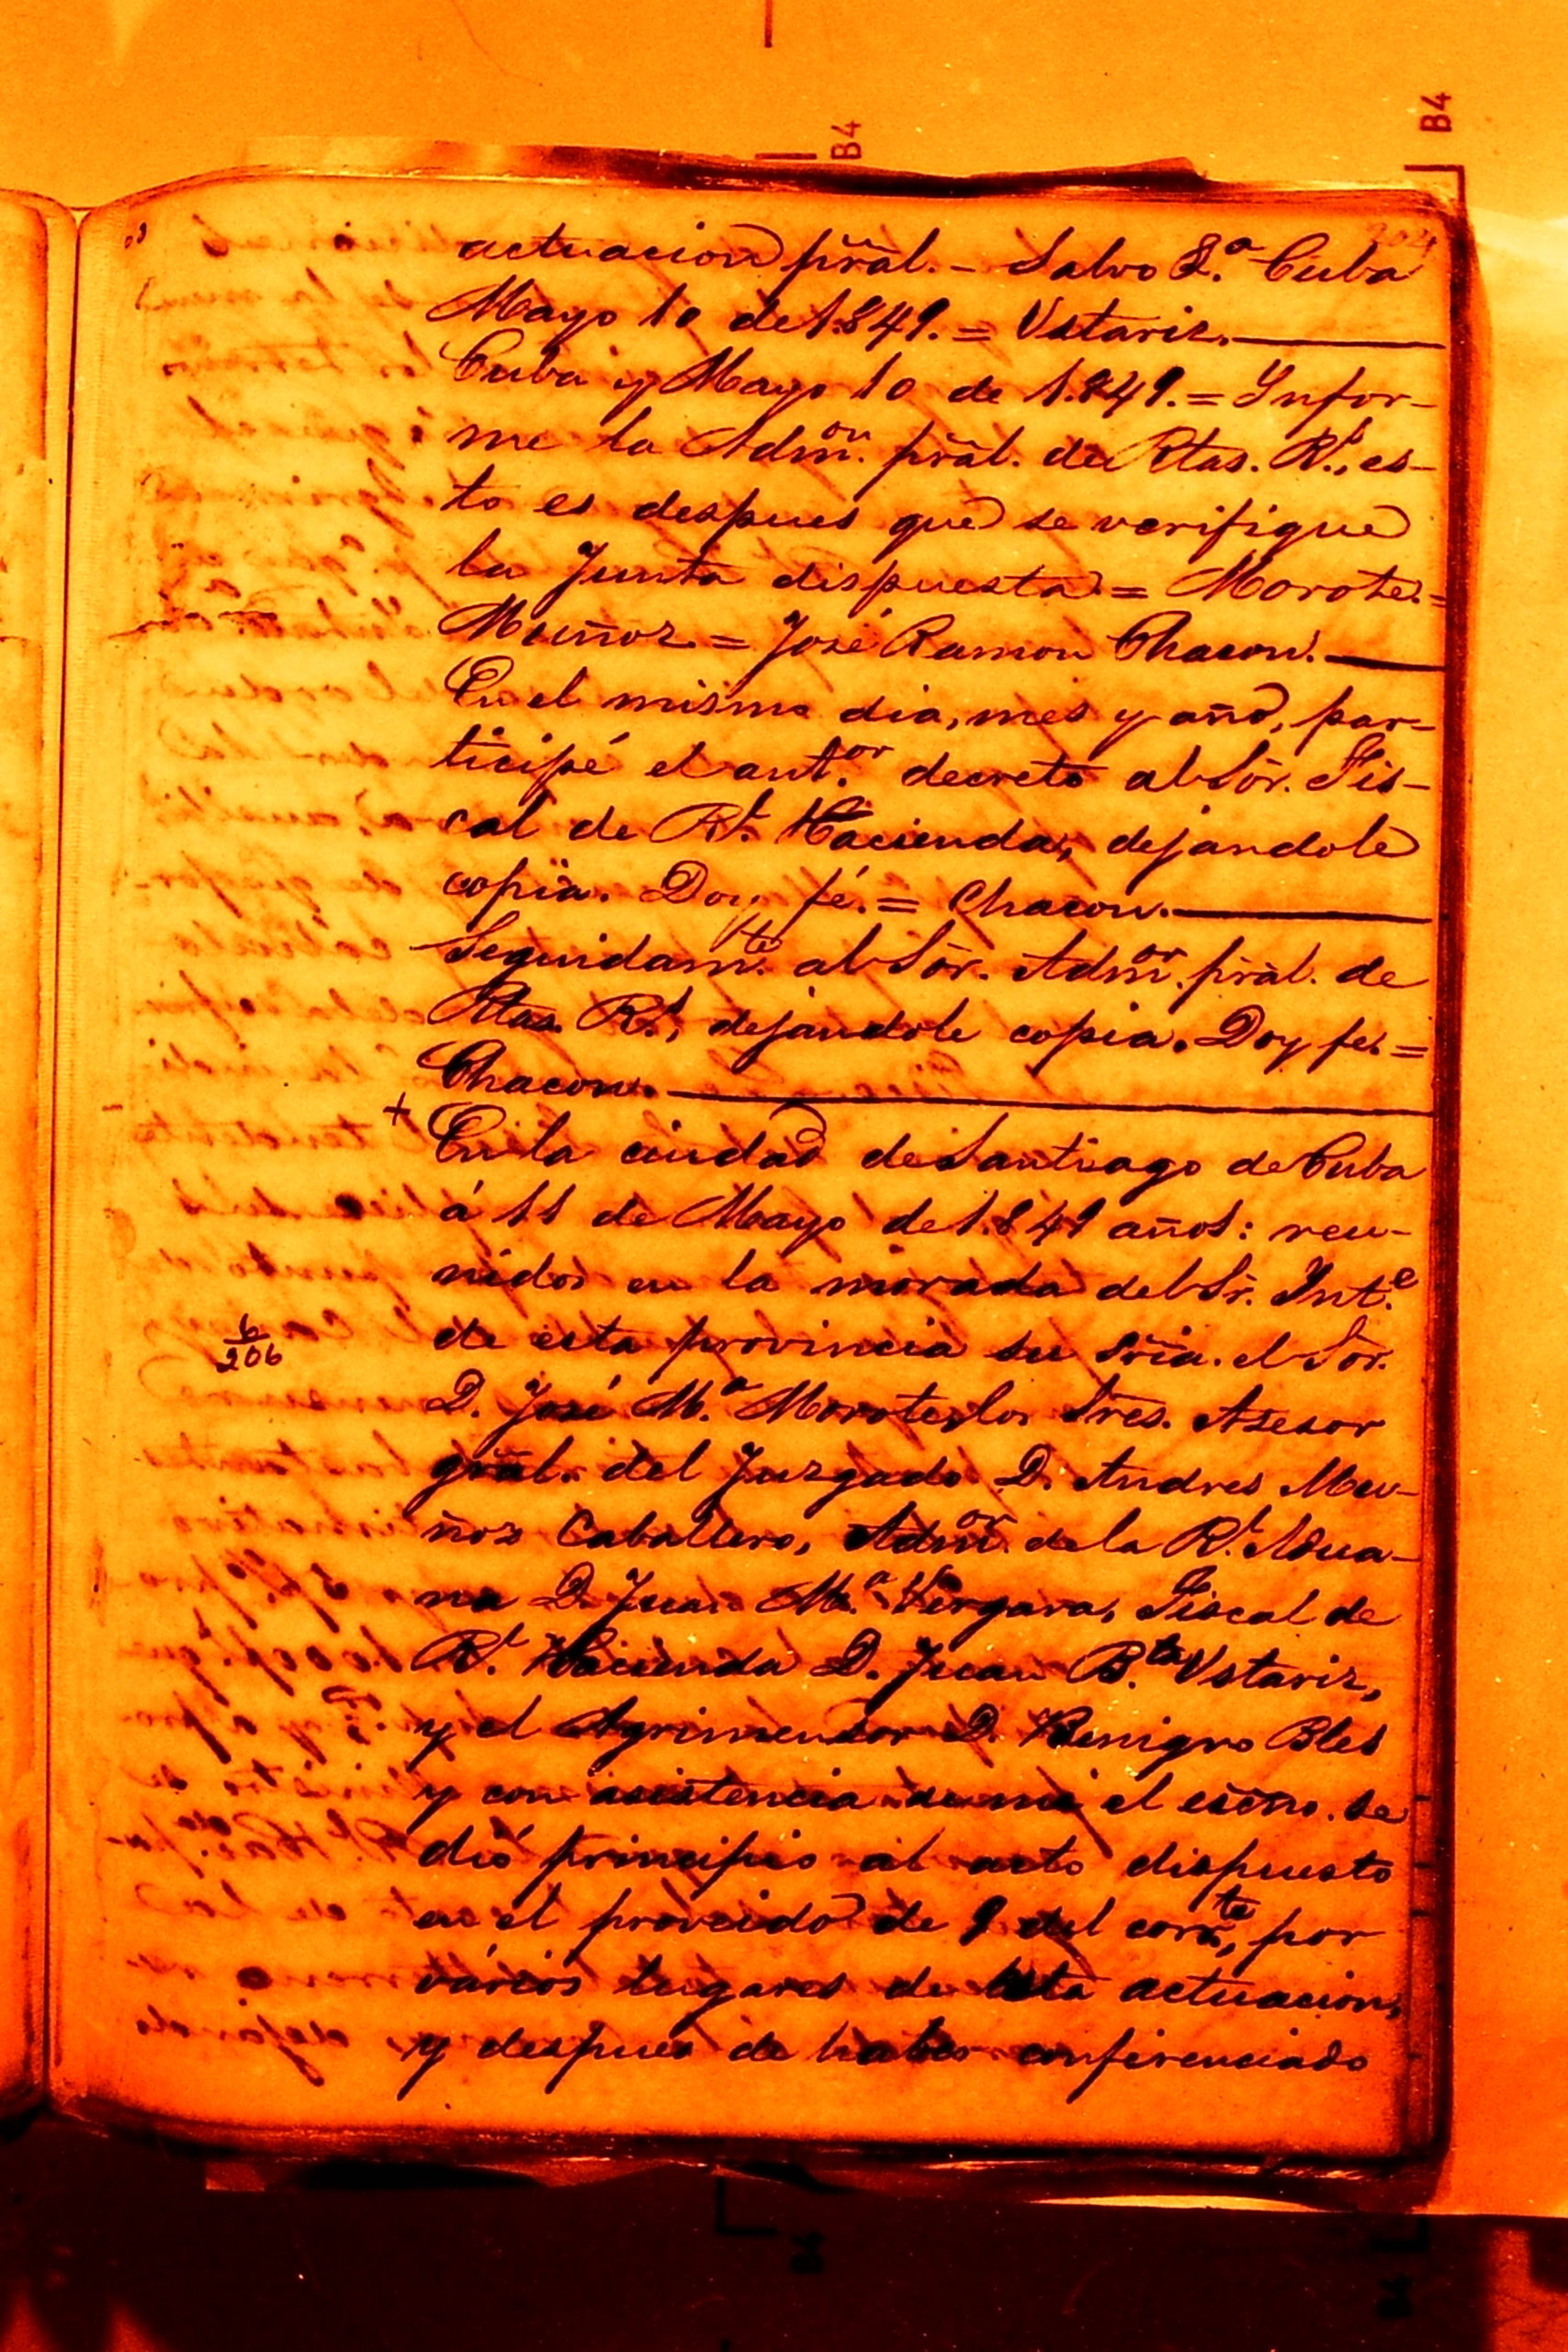 B4
B4
204
actuacion prâl. - Salvo &.ª Cuba
Mayo 10 de 1.849. = Ustariz.
Cuba y Mayo 10 de 1.849. = Infor-
me la Admon. prâl. de Rtas. Rs., es-
to es despues que se verifique
la Junta dispuesta = Morote. =
Muñoz = José Ramon Chacon.
En el mismo dia, mes y año, par-
ticipé el ant.or decreto al Sôr. Fis-
cal de Rl. Hacienda, dejandole
copia. Doy fé. = Chacon.
Seguidam.te al Sôr. Admor. prâl. de
Rtas. Rs., dejandole copia. Doy fe. =
Chacon.
+ En la ciudad de Santiago de Cuba
á 11 de Mayo de 1.849 años: reu-
nidos en la morada del Sr. Int.e
6
206
de esta provincia su Sría. el Sôr.
D. José M.ª Morote, los Sres. Asesor
grâl. del Juzgado D. Andres Mu-
ñoz Caballero, Admor. de la Rl. Adua-
na D. Juan M.ª Vergara, Fiscal de
Rl. Hacienda D. Juan B.ta Ustariz,
y el Agrimensor D. Benigno Bles
y con asistencia de mi el esc̃no. se
dió principio al acto dispuesto
en el proveido de 9 del corr.te, por
vários lugares de esta actuacion,
y despues de haber conferenciado
B4
B4